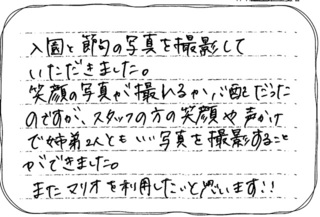 入園と節句の写真を撮影して
いただきました。
笑顔の写真が撮れるか心配だった
のですが、スタッフの方の笑顔や声かけ
で姉弟2人ともいい写真を撮影すること
ができました。
またマリオを利用したいと思います!!